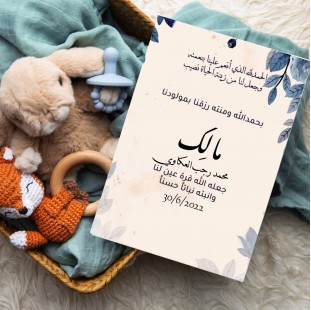 الحمدلله الذي أنعم علينا بنعمته
وجعل لنا من زينة الحياة نصيب
بحمدالله ومنته رزقنا بمولودنا
مالك
محمد رجب العكاوي
جعله الله قرة عين لنا
وانبته نباتاً حسناً
30/6/2022